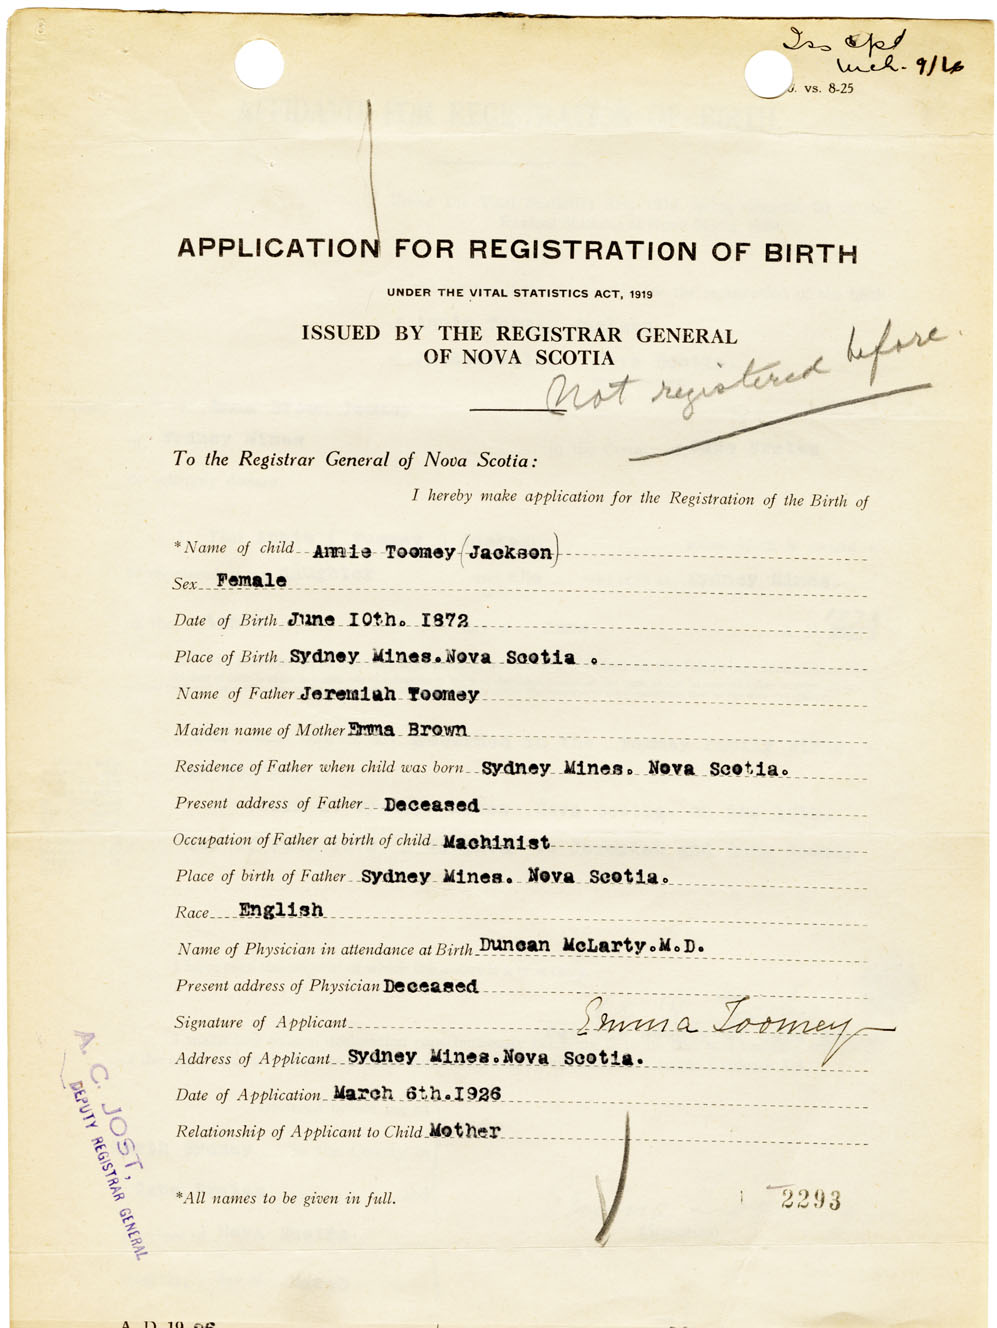 Iss
Mch. 9/26
vs. 8-25
APPLICATION FOR REGISTRATION OF BIRTH
UNDER THE VITAL STATISTICS ACT, 1919
ISSUED BY THE REGISTRAR GENERAL
OF NOVA SCOTIA
Not registered before.
To the Registrar General of Nova Scotia:
I hereby make application for the Registration of the Birth of
*Name of child Annie Toomey (Jackson)
Sex Female
Date of Birth June 10th. 1872
Place of Birth Sydney Mines.Nova Scotia .
Name of Father Jeremiah Toomey
Maiden name of Mother Emma Brown
Residence of Father when child was born Sydney Mines. Nova Scotia.
Present address of Father Deceased
Occupation of Father at birth of child Machinist
Place of birth of Father Sydney Mines. Nova Scotia.
Race English
Name of Physician in attendance at Birth Duncan McLarty.M.D.
Present address of Physician Deceased
Signature of Applicant Emma Toomey
Address of Applicant Sydney Mines.Nova Scotia.
Date of Application March 6th.1926
Relationship of Applicant to Child Mother
*All names to be given in full.
2293
A. C. JOST,
DEPUTY REGISTRAR GENERAL
A. D. 19 26